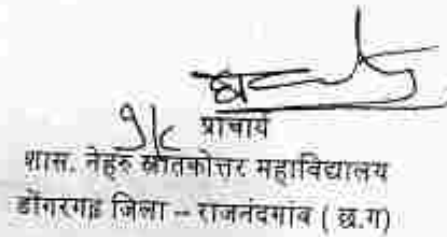 प्राचार्य
शास. नेहरू स्नातकोत्तर महाविद्यालय
डोंगरगढ़ जिला – राजनंदगांव ( छ.ग)